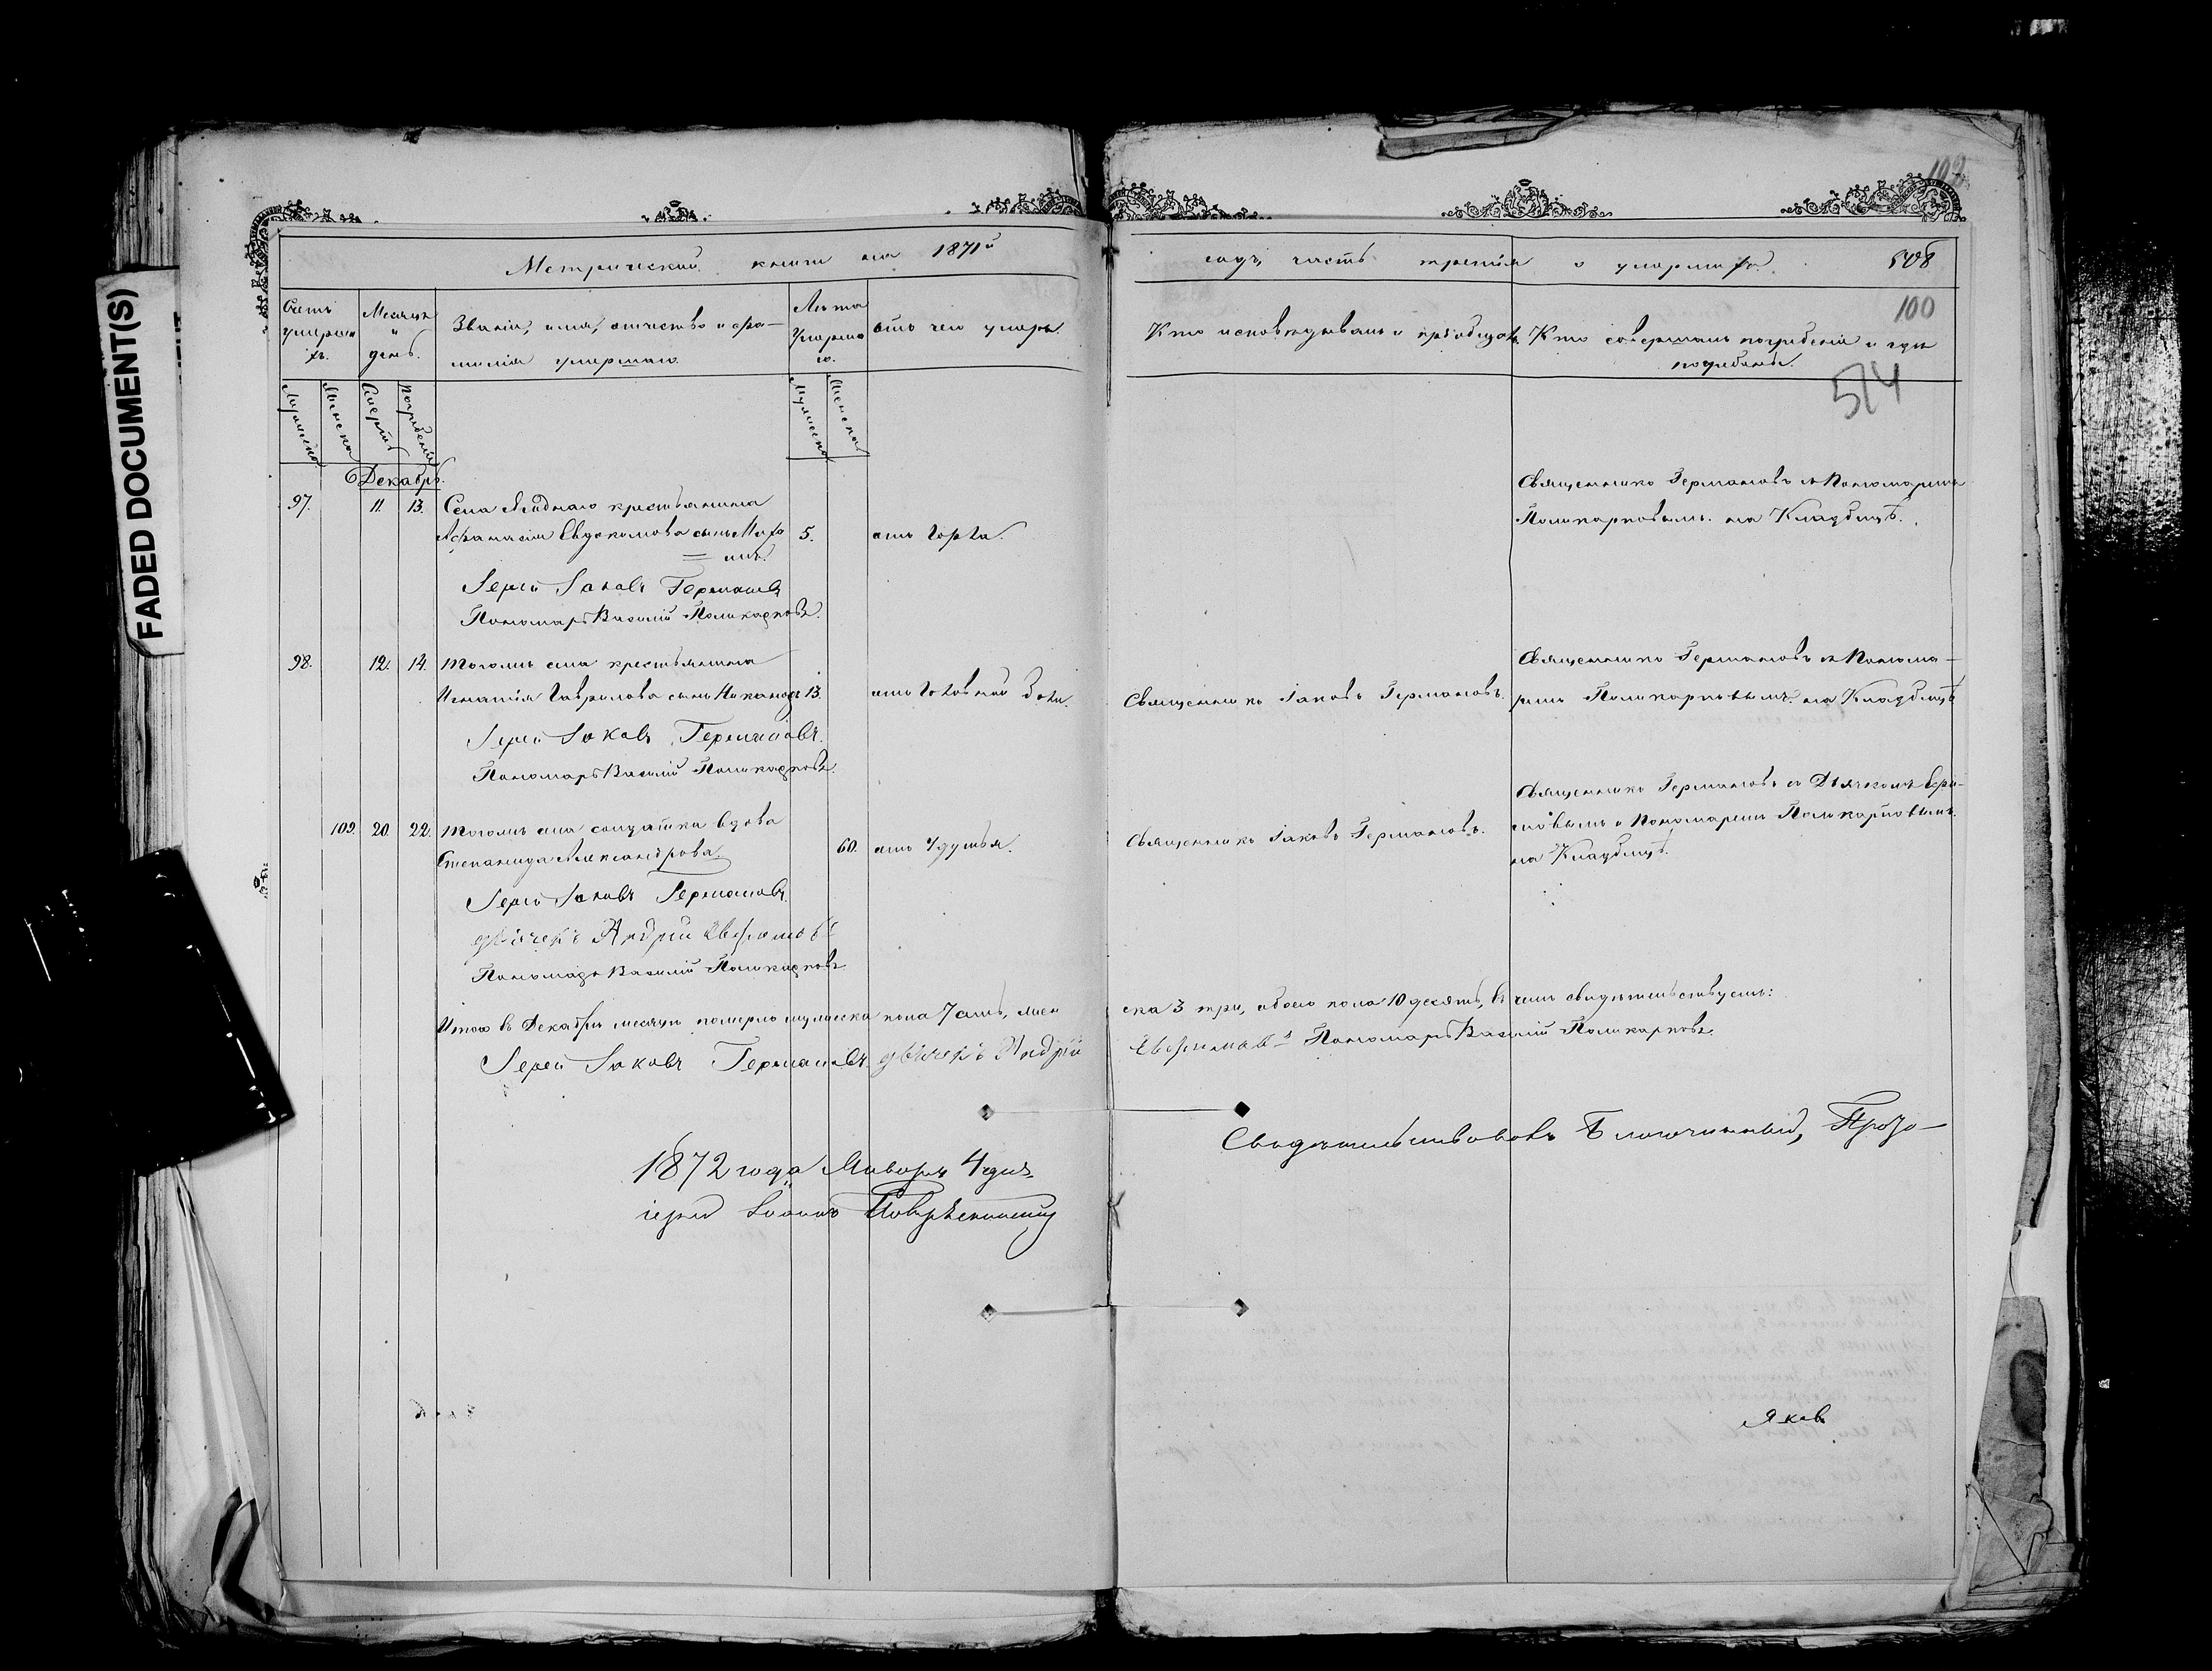 FADED DOCUMENT(S)
102
Метрической книги на 1871й
годъ, часть третія о умершихъ.
508
100
514
Счетъ умершихъ.
Месяцъ и день.
Званіе, имя, отчество и фа-
милія умершаго.
Лѣта умершаго.
отъ чего умеръ.
Кто исповѣдывалъ и пріобщалъ.
Кто совершалъ погребеніе и гдѣ
погребены.
Мужеска
Женска
Смерти
Погребенія
Мужеска
Женска
Декабрь.
97. 11. 13. Села крестьянина
Афанасія Евдокимова сынъ
5. отъ Корки.
Священникъ Германовъ съ Пономаремъ
Поликарповымъ. на Кладбищѣ.
Іерей Іаковъ Германовъ
Пономарь Василій Поликарповъ.
98. 12. 14. Тогожъ села крестьянина
Игнатія Гаврилова сынъ Никаноръ 13. отъ Головной боли.
Священникъ Іаковъ Германовъ.
Священникъ Германовъ съ Понома-
ремъ Поликарповымъ. на Кладбищѣ
Іерей Іаковъ Германовъ.
Пономарь Василій Поликарповъ.
102. 20. 22. Тогожъ села солдатка вдова
Степанида Александрова. 60. отъ Удушья.
Священникъ Іаковъ Германовъ.
Священникъ Германовъ съ Дьячкомъ Ефи-
мовымъ и Пономаремъ Поликарповымъ.
на Кладбищѣ.
Іерей Іаковъ Германовъ.
дьячекъ Андрій Евфимовъ
Пономарь Василій Поликарповъ
Итого въ Декабрѣ месяцѣ померло мужеска пола 7 семь, жен
ска 3 три, обоего пола 10 десять, въ чемъ свидѣтельствуемъ:
Іерей Іаковъ Германовъ. дьячекъ Андрій
Евфимовъ Пономарь Василій Поликарповъ.
1872 года Января 4 дня
Свидѣтельствовалъ Благочинный, Прото-
іерей Іоаннъ